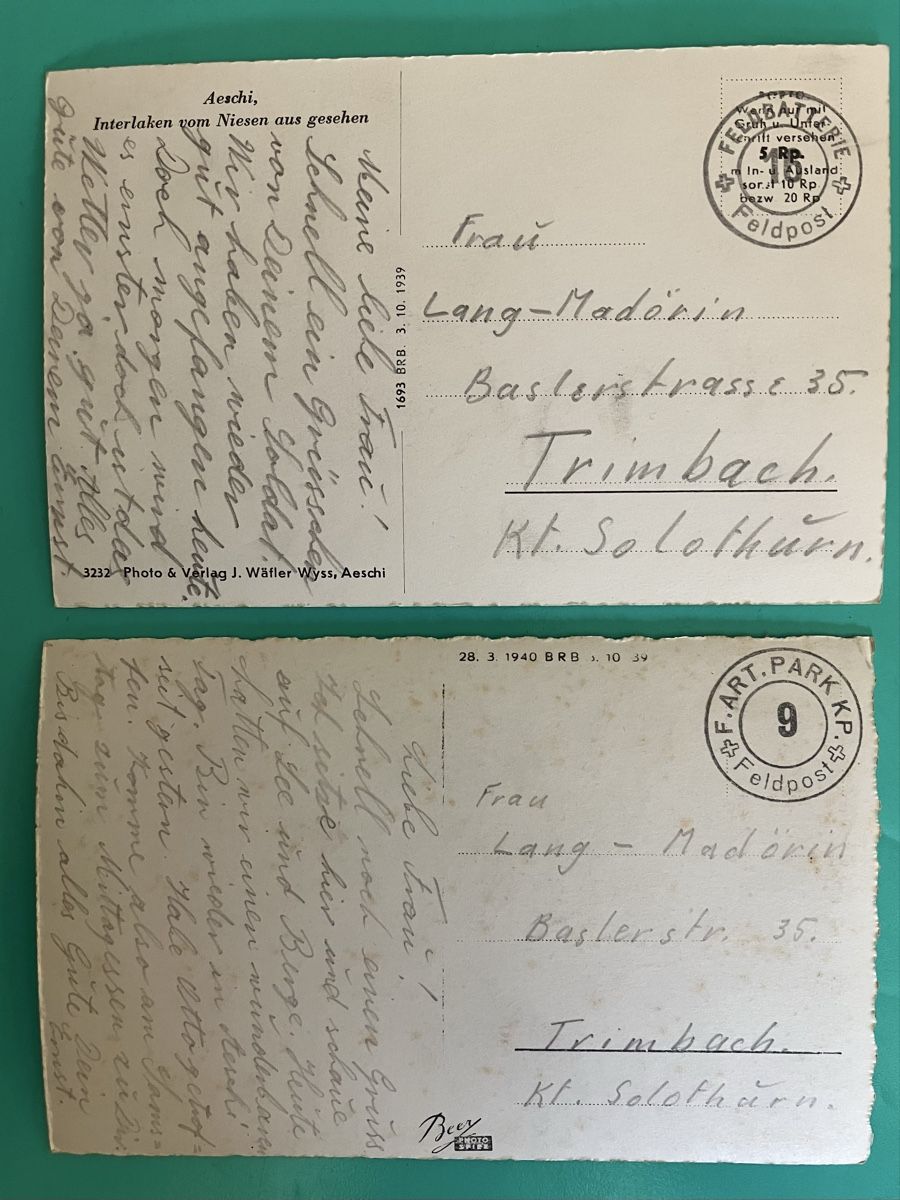 Aeschi,
Interlaken vom Niesen aus gesehen
Meine liebe Frau!
Schnell ein Grüsschen
von Deinem Soldat.
Wir haben wieder
gut angefangen heute.
Doch morgen wird
es ernster, doch ist das
Wetter ja gut. Alles
Gute von Deinem Ernst.
3232 Photo & Verlag J. Wäfler Wyss, Aeschi
1693 BRB. 3. 10. 1939
FELDBATTERIE
15
Feldpost
Wenn nur mit
Gruh u. Unter-
schrift versehen
5 Rp.
im In- u. Ausland
sonst 10 Rp
bezw 20 Rp
Frau
Lang-Madörin
Baslerstrasse 35.
Trimbach.
Kt. Solothurn.
28. 3. 1940 BRB 3. 10 39
F. ART. PARK KP.
9
Feldpost
Liebe Frau!
Schnell noch einen Gruss
Ich sitze hier und schaue
auf See und Berge. Heute
hatten wir einen wunderbaren
Tag. Bin wieder in Aeschi
seit gestern. Habe Otto getrof=
fen. Komme also am Sams=
tag zum Mittagessen zu Dir
Bis dahin alles Gute Dein
Ernst.
Frau
Lang - Madörin
Baslerstr. 35.
Trimbach.
Kt. Solothurn.
Beer
PHOTO
SPIEZ